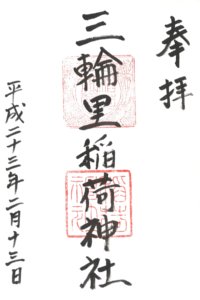 奉拝
三輪里稲荷神社
平成二十三年二月十三日